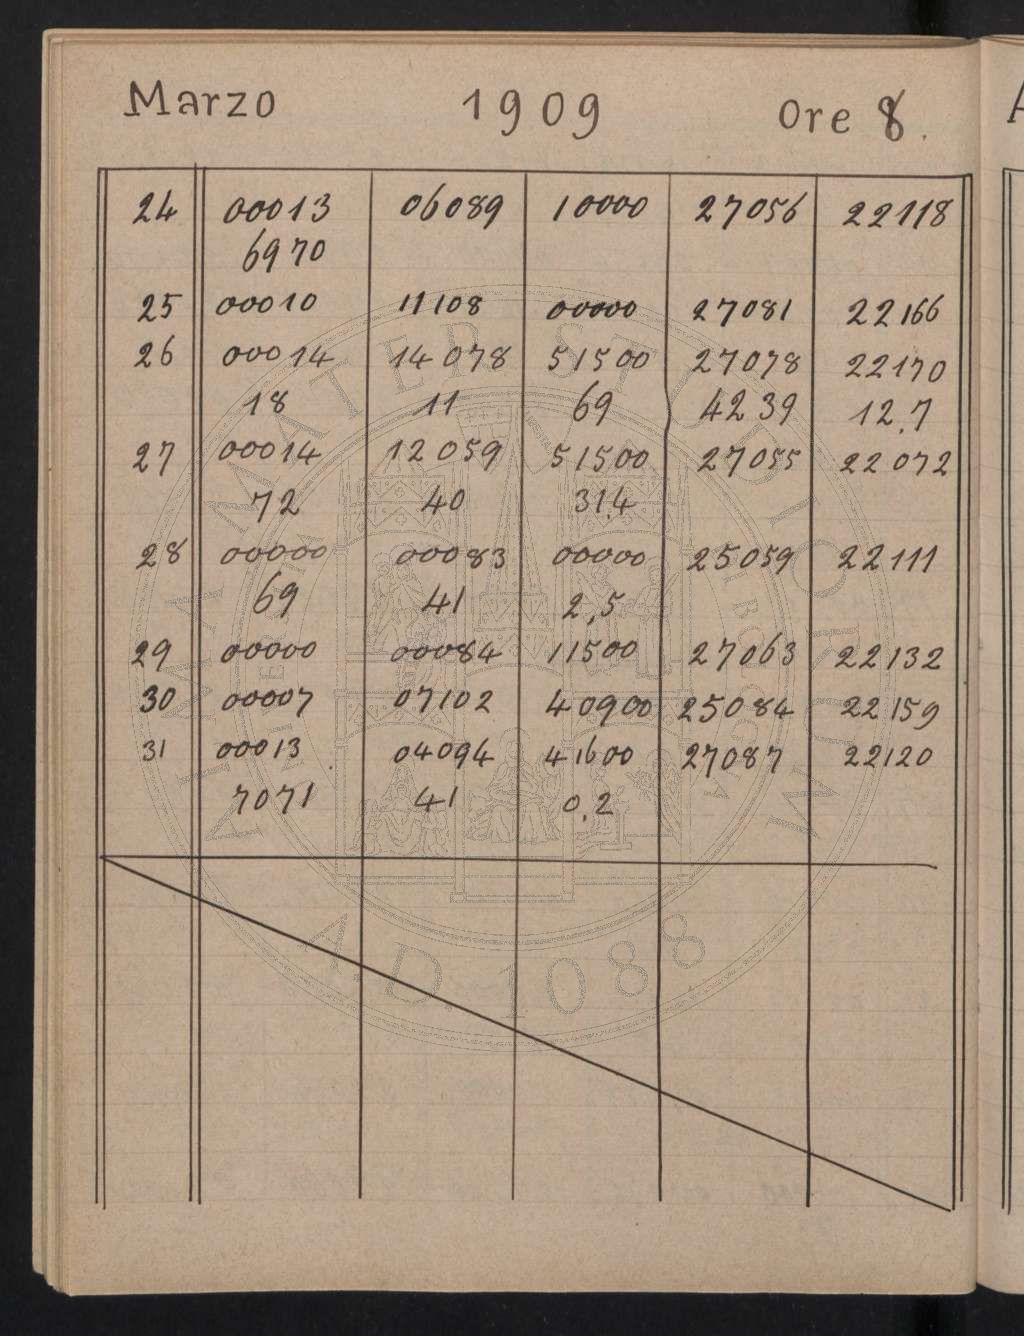 Marzo 1909 Ore 8.
24 00013 06089 10000 27056 22118
6970
25 00010 11108 00000 27081 22166
26 00014 14078 51500 27078 22170
18 11 69 4239 12,7
27 00014 12059 51500 27055 22072
72 40 31,4
28 00000 00083 00000 25059 22111
69 41 2,5
29 00000 00084 11500 27063 22132
30 00007 07102 40900 25084 22159
31 00013 04094 41600 27087 22120
7071 41 0,2
A.D. 1088